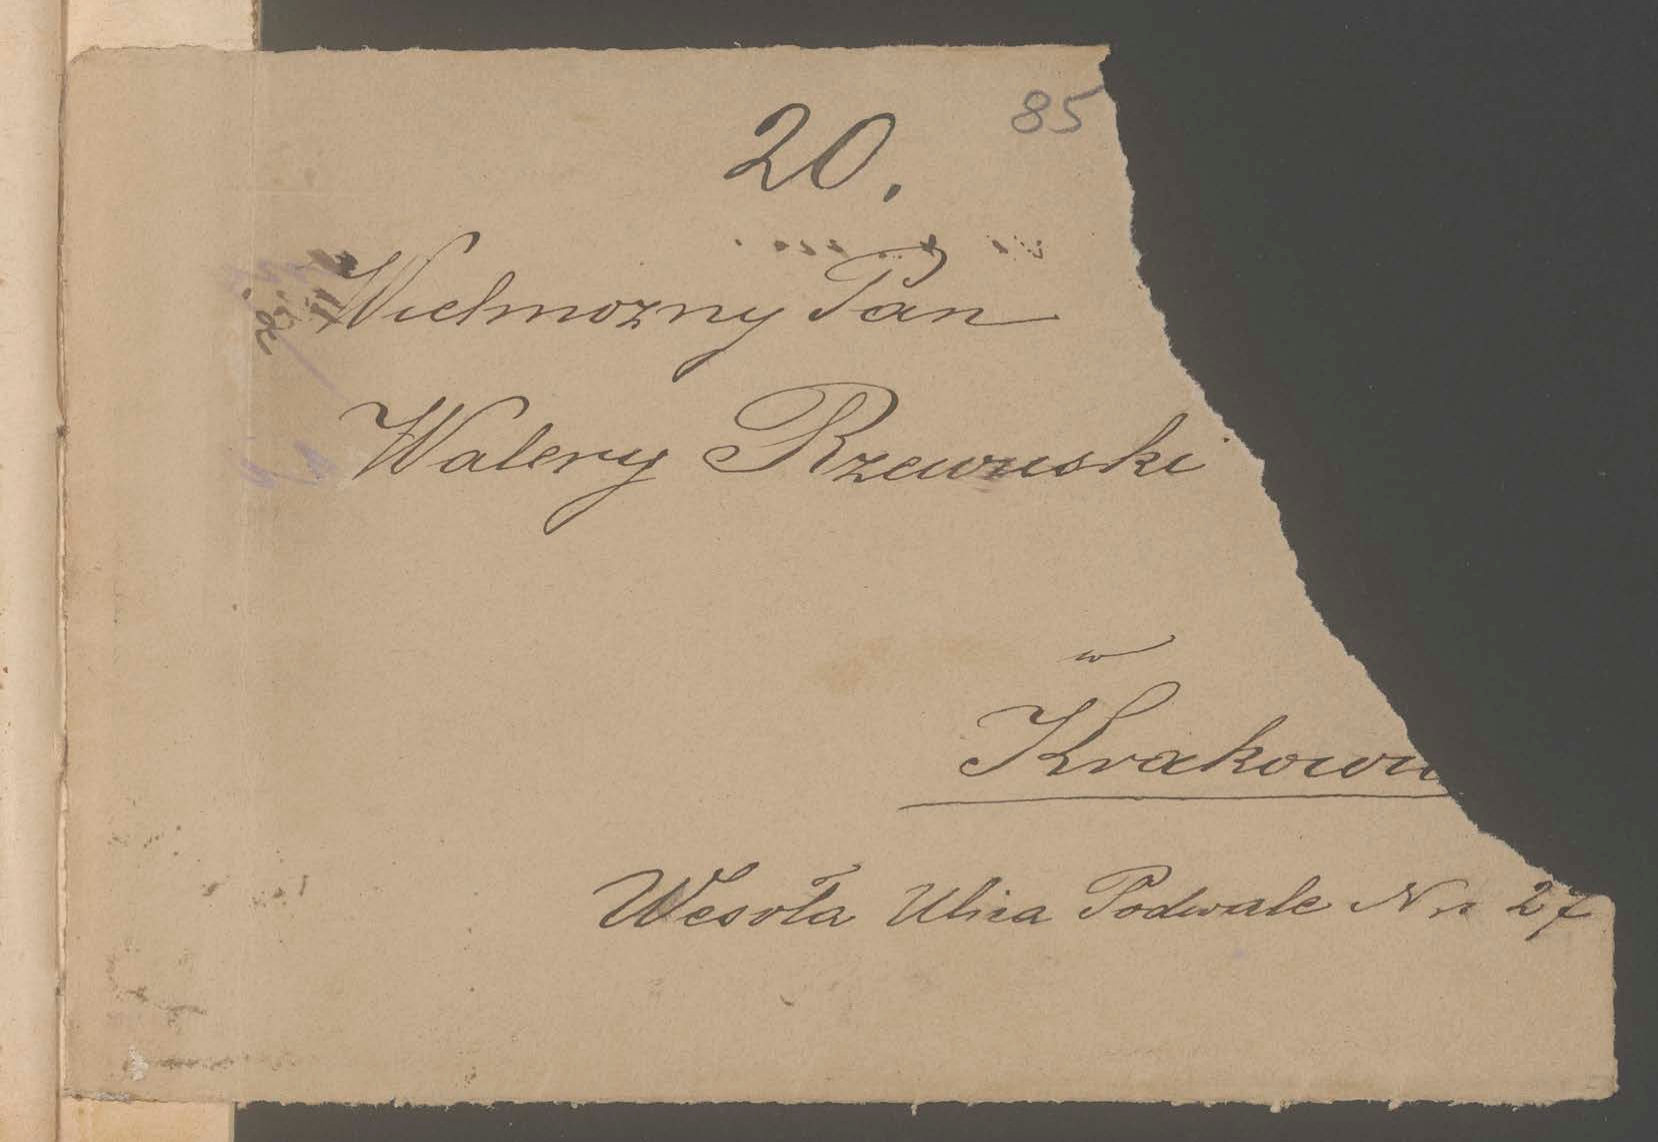 85
20.
Wielmozny Pan
Walery Rzewuski
w
Krakowi
Wesoła Ulica Podwale Nr 27